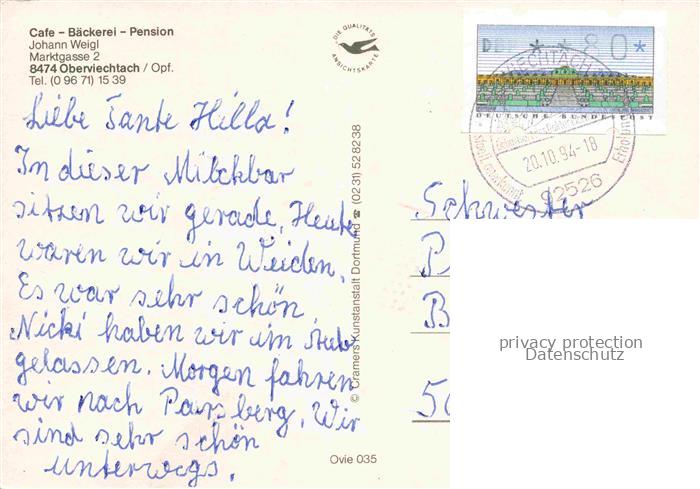 Cafe – Bäckerei – Pension
Johann Weigl
Marktgasse 2
8474 Oberviechtach / Opf.
Tel. (0 96 71) 15 39
DIE QUALITÄTS
ANSICHTSKARTE
DEUTSCHE BUNDESPOST
20.10.94-18
92526
Liebe Tante Hilla!
In dieser Milchbar
sitzen wir gerade. Heute
waren wir in Weiden.
Es war sehr schön
Nicki haben wir im
gelassen. Morgen fahren
wir nach Parsberg. Wir
sind sehr schön
unterwegs.
© Cramers Kunstanstalt Dortmund ☎ (0231) 52 82 38
Ovie 035
Schwester
P
B
50
privacy protection
Datenschutz